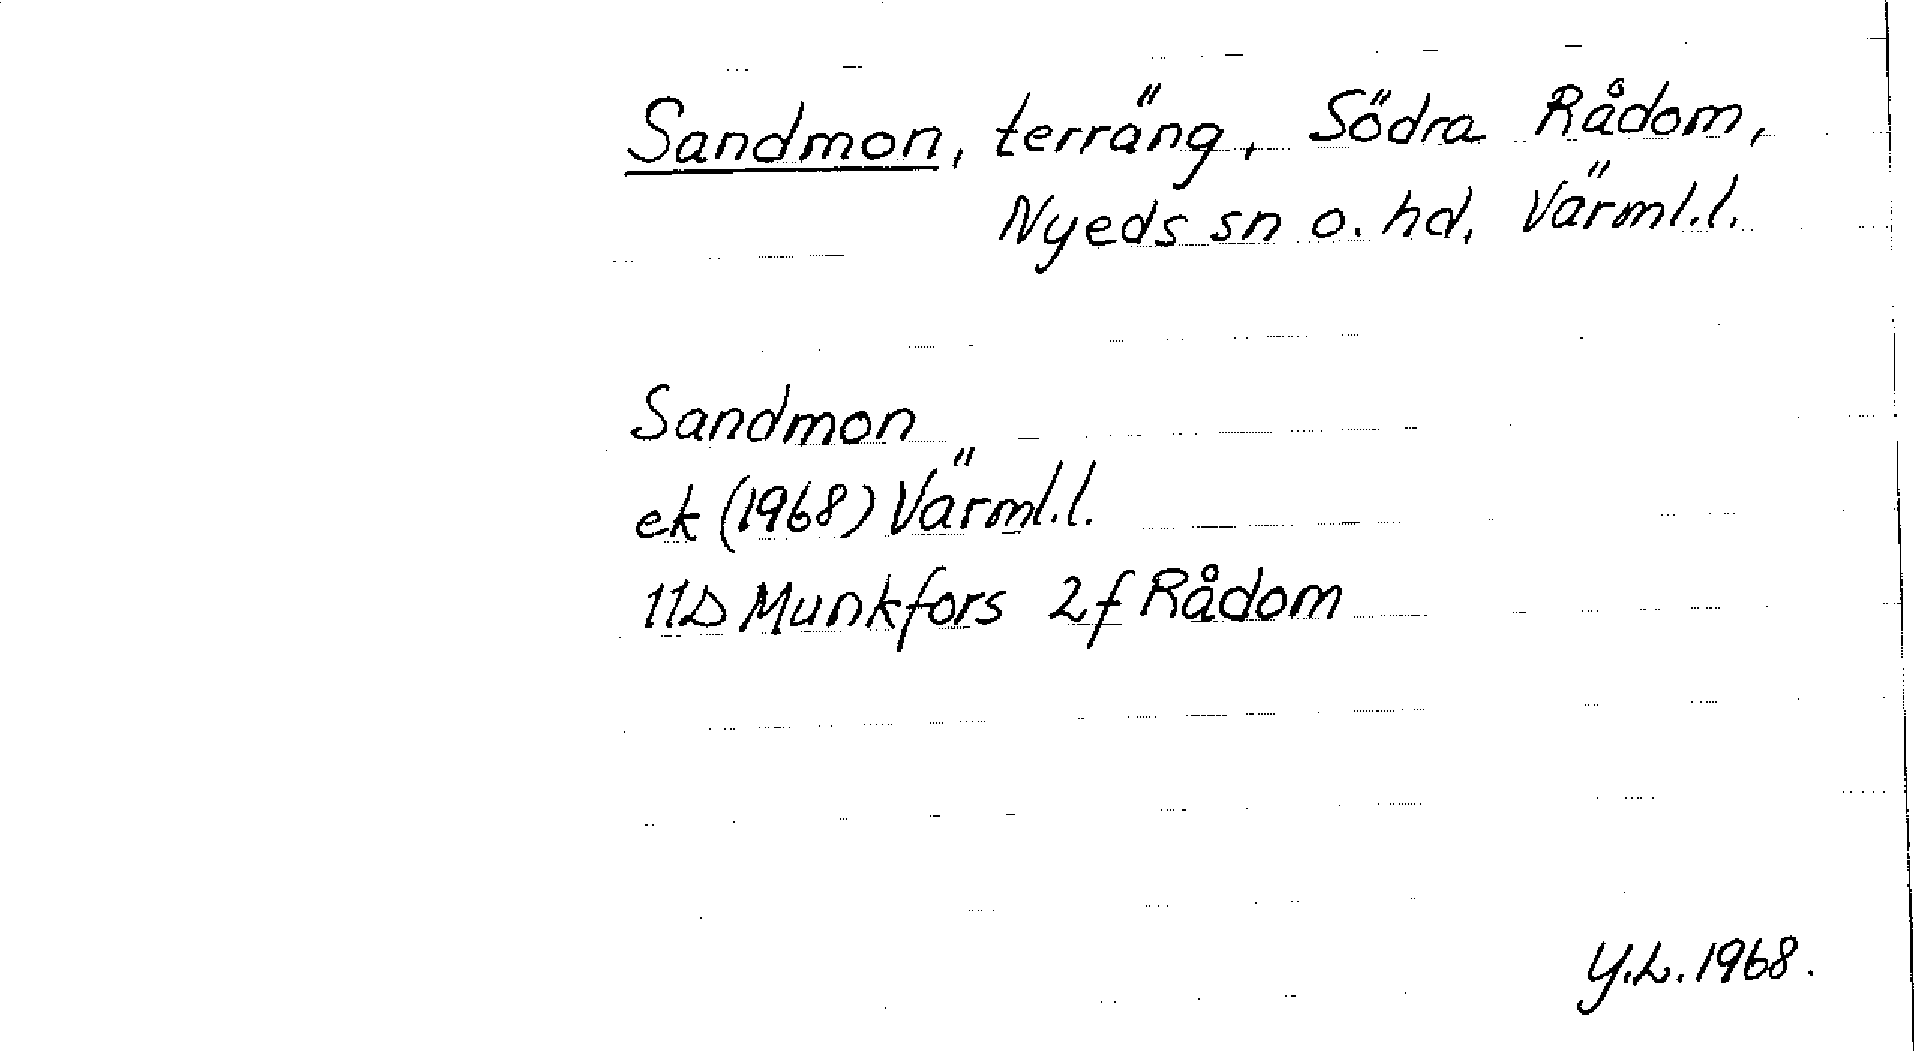 Sandmon, terräng, Södra Rådom,
Nyeds sn o. hd, Värml.l.
Sandmon
ek (1968) Värml.l.
11D Munkfors 2f Rådom
Y.L. 1968.